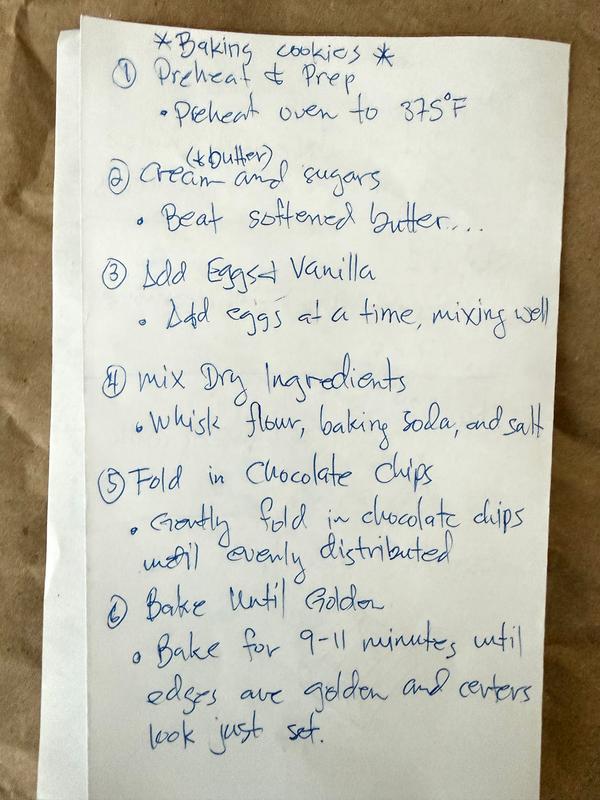 *Baking cookies*
① Preheat & Prep
• Preheat oven to 375°F
(*butter)
② Cream and sugars
• Beat softened butter...
③ Add Eggs & Vanilla
• Add eggs at a time, mixing well
④ mix Dry Ingredients
• Whisk flour, baking soda, and salt
⑤ Fold in chocolate chips
• Gently fold in chocolate chips
until evenly distributed
⑥ Bake Until Golden
• Bake for 9-11 minutes until
edges are golden and centers
look just set.